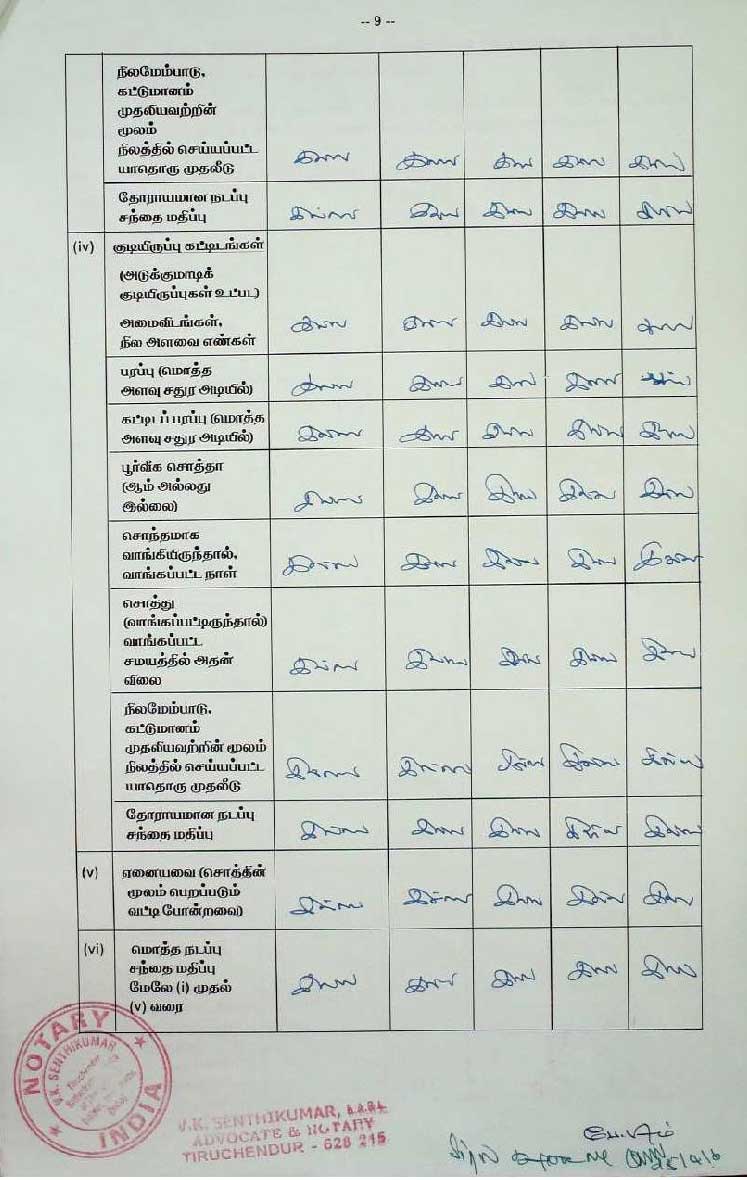 -- 9 --
நிலமேம்பாடு,
கட்டுமானம்
முதலியவற்றின்
மூலம்
நிலத்தில் செய்யப்பட்ட
யாதொரு முதலீடு
இல்லை இல்லை இல்லை இல்லை இல்லை
தோராயமான நடப்பு
சந்தை மதிப்பு
இல்லை இல்லை இல்லை இல்லை இல்லை
(iv) குடியிருப்பு கட்டிடங்கள்
(அடுக்குமாடிக்
குடியிருப்புகள் உட்பட)
அமைவிடங்கள்,
நில அளவை எண்கள்
இல்லை இல்லை இல்லை இல்லை இல்லை
பரப்பு (மொத்த
அளவு சதுர அடியில்)
இல்லை இல்லை இல்லை இல்லை இல்லை
கட்டிடப்பரப்பு (மொத்த
அளவு சதுர அடியில்)
இல்லை இல்லை இல்லை இல்லை இல்லை
பூர்வீக சொத்தா
(ஆம் அல்லது
இல்லை)
இல்லை இல்லை இல்லை இல்லை இல்லை
சொந்தமாக
வாங்கியிருந்தால்,
வாங்கப்பட்ட நாள்
இல்லை இல்லை இல்லை இல்லை இல்லை
சொத்து
(வாங்கப்பட்டிருந்தால்)
வாங்கப்பட்ட
சமயத்தில் அதன்
விலை
இல்லை இல்லை இல்லை இல்லை இல்லை
நிலமேம்பாடு,
கட்டுமானம்
முதலியவற்றின் மூலம்
நிலத்தில் செய்யப்பட்ட
யாதொரு முதலீடு
இல்லை இல்லை இல்லை இல்லை இல்லை
தோராயமான நடப்பு
சந்தை மதிப்பு
இல்லை இல்லை இல்லை இல்லை இல்லை
(v) ஏனையவை (சொத்தின்
மூலம் பெறப்படும்
வட்டி போன்றவை)
இல்லை இல்லை இல்லை இல்லை இல்லை
(vi) மொத்த நடப்பு
சந்தை மதிப்பு
மேலே (i) முதல்
(v) வரை
இல்லை இல்லை இல்லை இல்லை இல்லை
NOTARY
V.K. SENTHIKUMAR
INDIA
V.K. SENTHIKUMAR, B.A.B.L.
ADVOCATE & NOTARY
TIRUCHENDUR - 628 215